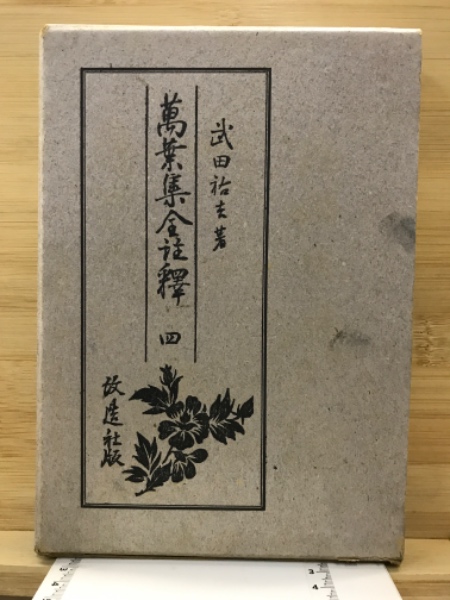 武田祐吉著
萬葉集全註釋 四
改造社版
3
4